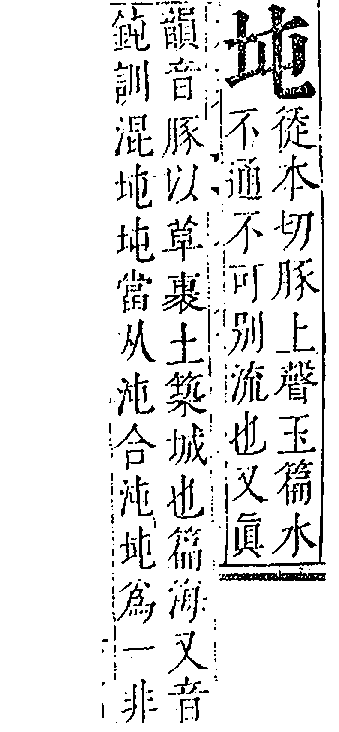 坉
從本切豚上聲玉篇水
不通不可別流也又眞
韻音豚以草裹土築城也篇海又音
鈍訓混坉坉當从沌合沌坉爲一非